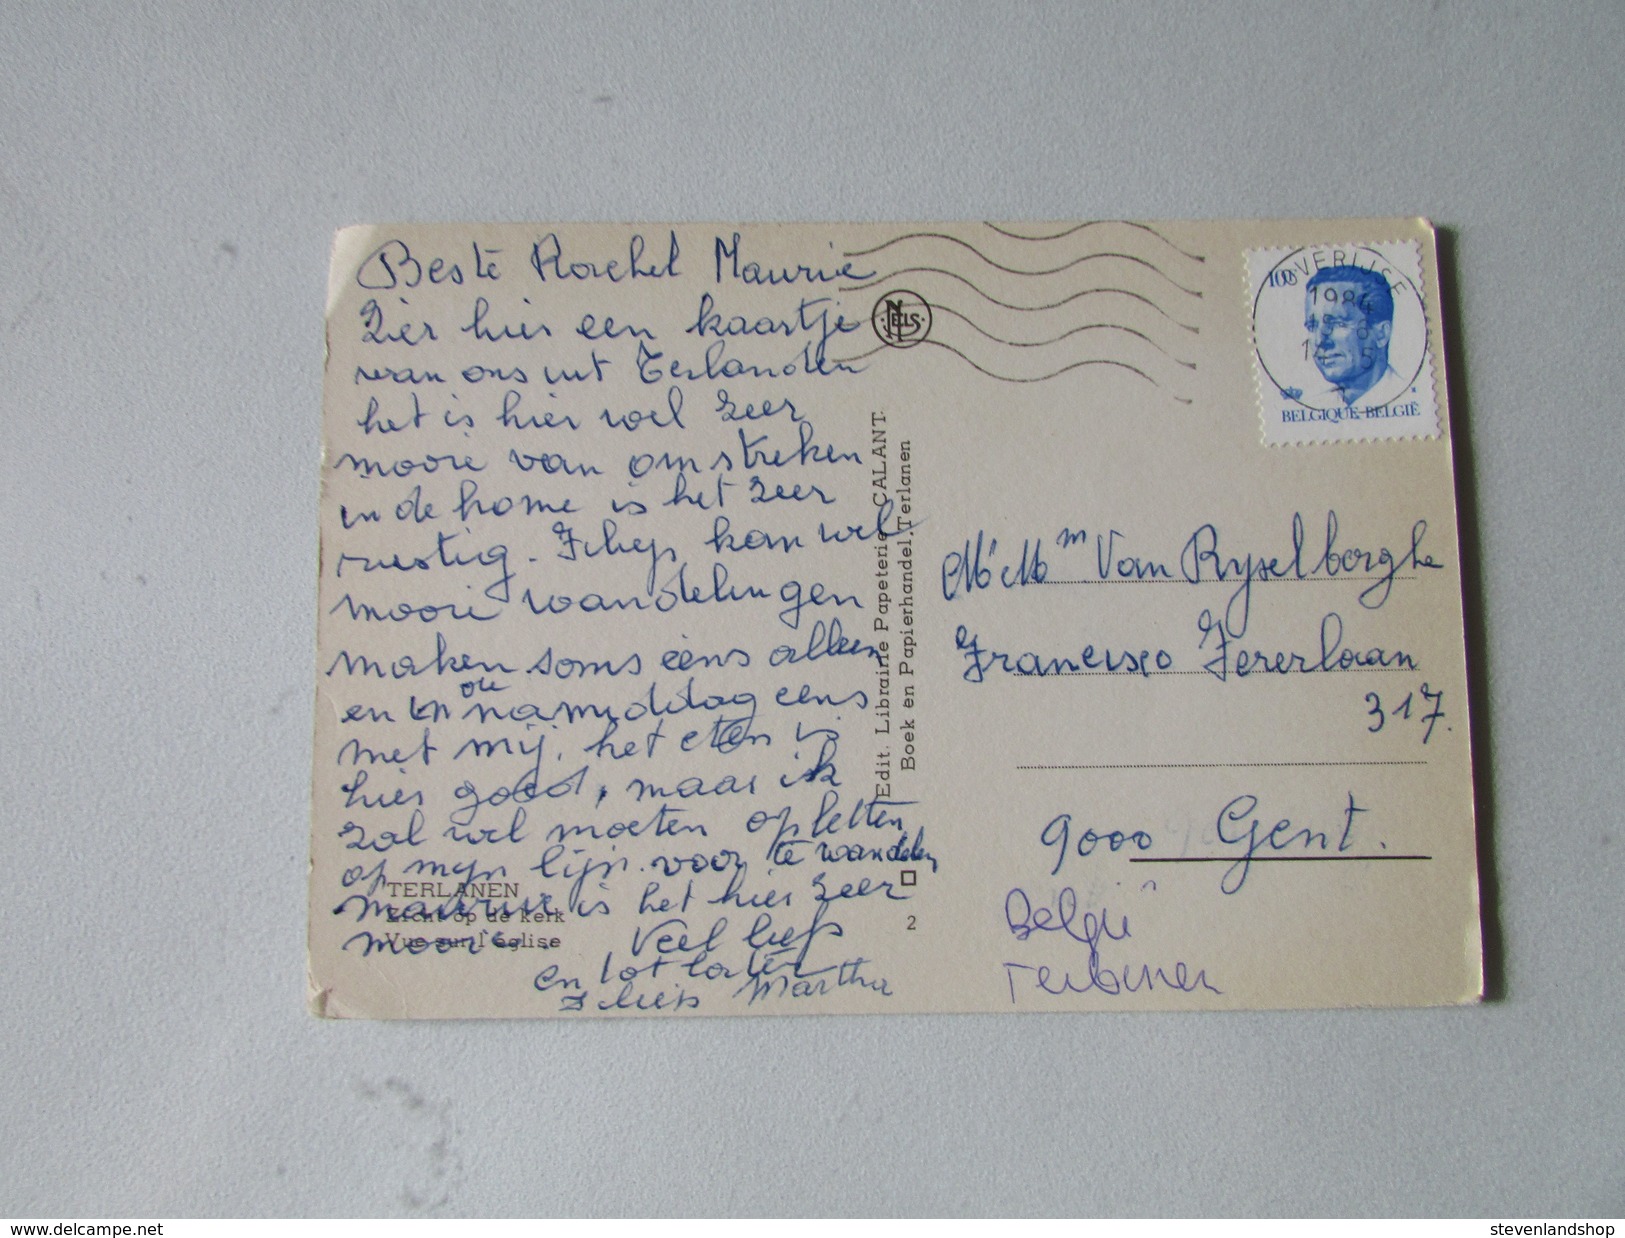 Beste Rachel Maurice
Zier hier een kaartje
van ons uit Terlanden
het is hier wel zeer
mooie van omstreken
in de home is het zeer
rustig. Filiep kan wel
mooie wandelingen
maken soms eens alleen
en in de namiddag eens
met mij. het eten is
hier goed, maar ik
zal wel moeten opletten
op mijn lijn. voor te wandelen
maurice is het hier zeer
mooie.
Veel liefs
en tot later
Filiep Martha
TERLANEN
Zicht op de kerk
Vue sur l'église
NELS
Edit. Librairie Papeterie CALANT.
Boek en Papierhandel, Terlanen
2
OVERIJSE
1984
10F
BELGIQUE-BELGIË
M. & Mm Van Rysselberghe
Francisco Fererlaan
317.
9000 Gent.
België
Terlanen
www.delcampe.net
stevenlandshop